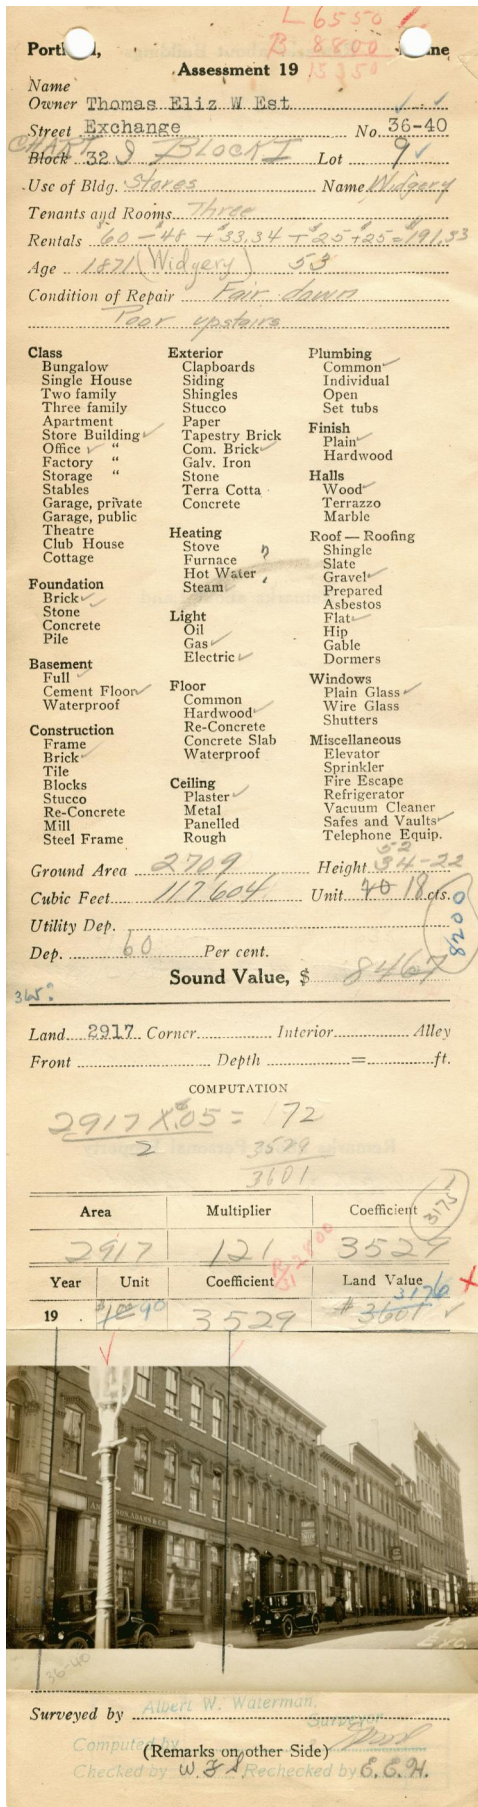 L 6550
B 8800
15350
Portland, Maine
Assessment 19
Name
Owner Thomas Eliz W Est
Street Exchange No. 36-40
CHART 9 BLOCK I
Block 32 Lot 9
Use of Bldg. Stores Name Widgery
Tenants and Rooms Three
Rentals $60 - $48 + $33.34 + $25 + $25 = $191.33
Age 1871 (Widgery) 53
Condition of Repair Fair down
Poor upstairs
Class
Bungalow
Single House
Two family
Three family
Apartment
Store Building ✓
Office ✓ "
Factory "
Storage "
Stables
Garage, private
Garage, public
Theatre
Club House
Cottage
Foundation
Brick ✓
Stone ✓
Concrete
Pile
Basement
Full ✓
Cement Floor ✓
Waterproof
Construction
Frame
Brick ✓
Tile
Blocks
Stucco
Re-Concrete
Mill
Steel Frame
Exterior
Clapboards
Siding
Shingles
Stucco
Paper
Tapestry Brick
Com. Brick ✓
Galv. Iron
Stone
Terra Cotta
Concrete
Heating
Stove
Furnace ?
Hot Water
Steam ✓
Light
Oil
Gas ✓
Electric ✓
Floor
Common
Hardwood ✓
Re-Concrete
Concrete Slab
Waterproof
Ceiling
Plaster ✓
Metal
Panelled
Rough
Plumbing
Common ✓
Individual
Open
Set tubs
Finish
Plain ✓
Hardwood
Halls
Wood ✓
Terrazzo
Marble
Roof — Roofing
Shingle
Slate
Gravel ✓
Prepared
Asbestos
Flat ✓
Hip
Gable
Dormers
Windows
Plain Glass ✓
Wire Glass
Shutters
Miscellaneous
Elevator
Sprinkler
Fire Escape
Refrigerator
Vacuum Cleaner
Safes and Vaults ✓
Telephone Equip.
52
Ground Area 2709 Height 34-22
Cubic Feet 117604 Unit 20 18 cts.
Utility Dep.
8200
Dep. 60 Per cent.
Sound Value, $ 8467
365?
Land 2917 Corner Interior Alley
Front Depth = ft.
COMPUTATION
2917 X .05 = 72
2
3529
3601
Area Multiplier Coefficient 3175
2917 121 3529
Year Unit Coefficient Land Value
3176 X
19 $1.00 90 3529 $3601 ✓
ADAMS & CO.
Exc.
36-40
Albert W. Waterman,
Surveyed by Surveyor
Computed by
(Remarks on other Side)
Checked by W.F.S. Rechecked by E.E.H.